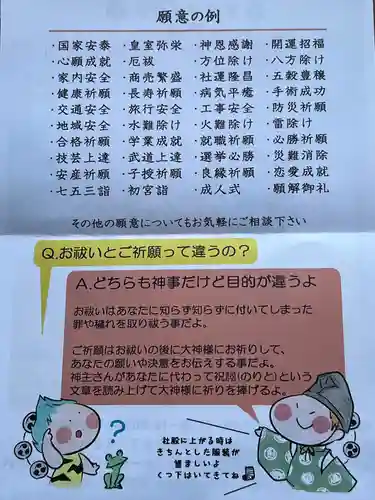 願意の例
・国家安泰 ・皇室弥栄 ・神恩感謝 ・開運招福
・心願成就 ・厄祓 ・方位除け ・八方除け
・家内安全 ・商売繁盛 ・社運隆昌 ・五穀豊穣
・健康祈願 ・長寿祈願 ・病気平癒 ・手術成功
・交通安全 ・旅行安全 ・工事安全 ・防災祈願
・地域安全 ・水難除け ・火難除け ・雷除け
・合格祈願 ・学業成就 ・就職祈願 ・必勝祈願
・技芸上達 ・武道上達 ・選挙必勝 ・災難消除
・安産祈願 ・子授祈願 ・良縁祈願 ・恋愛成就
・七五三詣 ・初宮詣 ・成人式 ・願解御礼
その他の願意についてもお気軽にご相談下さい
Q.お祓いとご祈願って違うの？
A.どちらも神事だけど目的が違うよ
お祓いはあなたに知らず知らずに付いてしまった
罪や穢れを取り祓う事だよ。
ご祈願はお祓いの後に大神様にお祈りして、
あなたの願いや決意をお伝えする事だよ。
神主さんがあなたに代わって祝詞(のりと)という
文章を読み上げて大神様に祈りを捧げるよ。
?
社殿に上がる時は
きちんとした服装が
望ましいよ
くつ下はいてきてね